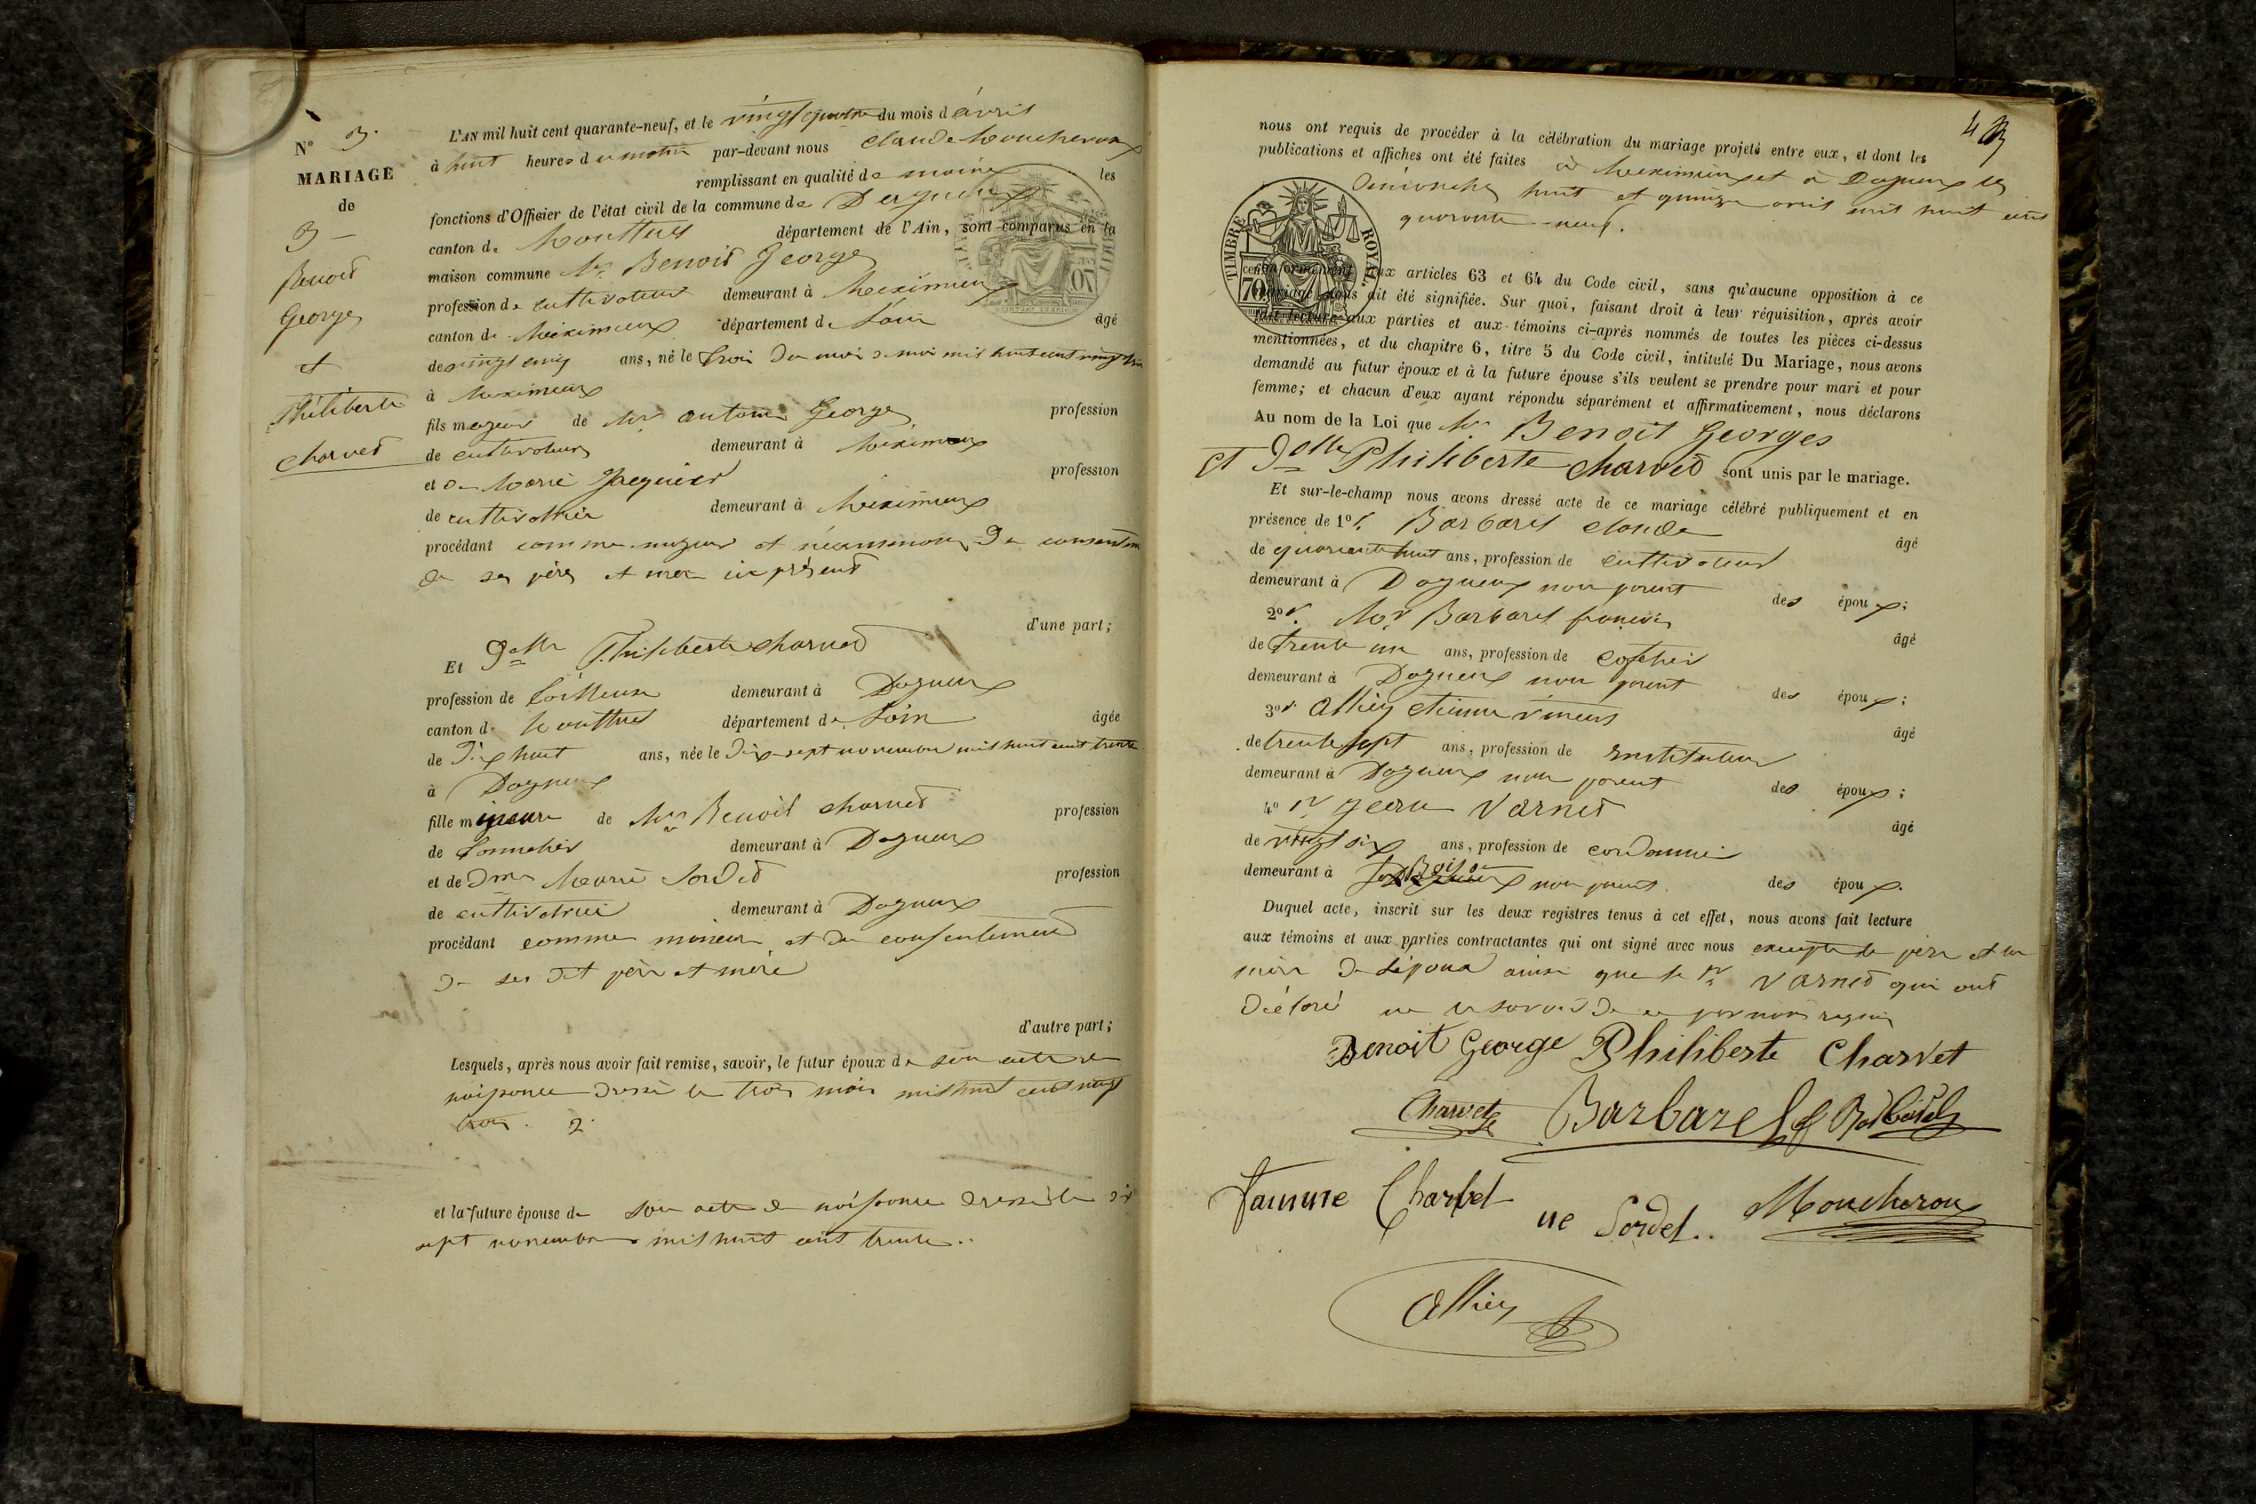 N° 3.
MARIAGE
de
3 —
Benoit
George
et
Philiberte
Charvet
L'AN mil huit cent quarante-neuf, et le vingt quatre du mois d'avril
à huit heures du matin par-devant nous Claude Moucheroux
remplissant en qualité de maire les
fonctions d'Officier de l'état civil de la commune de Dagneux
canton de Montluel département de l'Ain, sont comparus en la
maison commune Mr Benoit George
profession de cultivateur demeurant à Meximieux
canton de Meximieux département de L'ain âgé
de vingt cinq ans, né le trois du mois de mai mil huit cent vingt trois
à Meximieux
fils majeur de Mr antoine George profession
de cultivateur demeurant à Meximieux
et de Marie Jacquier profession
de cultivatrice demeurant à Meximieux
procédant comme majeur et néanmoins du
de ses père et mère ici présent
d'une part;
Et Delle Philiberte Charvet
profession de tailleuse demeurant à Dagneux
canton de Montluel département de L'ain âgée
de Dix huit ans, née le Dix sept novembre mil huit cent trente
à Dagneux
fille mineure de Mr Benoit Charvet profession
de tonnelier demeurant à Dagneux
et de Dme Marie Sordet profession
de cultivatrice demeurant à Dagneux
procédant comme mineure et du consentement
de ses dit père et mère
d'autre part;
Lesquels, après nous avoir fait remise, savoir, le futur époux de son acte de
naissance dressé le trois mai mil huit cent vingt
trois. 2.
et la future épouse de son acte de naissance dressé le dix
sept novembre mil huit cent trente..
43
nous ont requis de procéder à la célébration du mariage projeté entre eux, et dont les
publications et affiches ont été faites à Meximieux et à Dagneux les
Dimanches huit et quinze avril mil huit cent
quarante-neuf.
TIMBRE ROYAL
70
conformément aux articles 63 et 64 du Code civil, sans qu'aucune opposition à ce
mariage nous ait été signifiée. Sur quoi, faisant droit à leur réquisition, après avoir
fait lecture aux parties et aux témoins ci-après nommés de toutes les pièces ci-dessus
mentionnées, et du chapitre 6, titre 5 du Code civil, intitulé Du Mariage, nous avons
demandé au futur époux et à la future épouse s'ils veulent se prendre pour mari et pour
femme; et chacun d'eux ayant répondu séparément et affirmativement, nous déclarons
Au nom de la Loi que Mr Benoit Georges
et Delle Philiberte Charvet sont unis par le mariage.
Et sur-le-champ nous avons dressé acte de ce mariage célébré publiquement et en
présence de 1° Barbaret Claude âgé
de quarante huit ans, profession de cultivateur
demeurant à Dagneux non parent des époux;
2° Mr Barbaret françois âgé
de trente un ans, profession de
demeurant à Dagneux non parent des époux;
3° etienne âgé
de trente sept ans, profession de instituteur
demeurant à Dagneux non parent des époux;
4° Jean Varnet âgé
de vingt six ans, profession de cordonnier
demeurant à non parent des époux.
Duquel acte, inscrit sur les deux registres tenus à cet effet, nous avons fait lecture
aux témoins et aux parties contractantes qui ont signé avec nous excepté le père et la
mère de l'époux ainsi que le Sr Varnet qui ont
déclaré ne le savoir de ce par nous requis
Benoit George Philiberte Charvet
Charvet Barbarel f Barbarel
famme Charvet ne Sordet.. Moucheroux